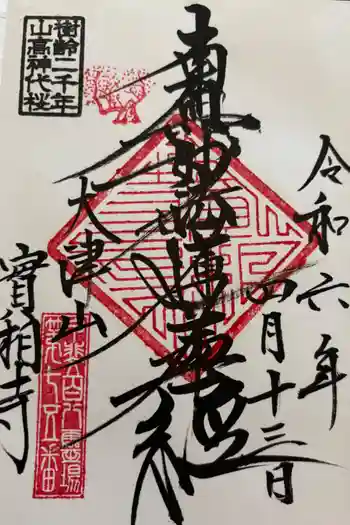 樹齢二千年
山高神代桜
令和六年
四月十三日
南無妙法蓮華経
大津山
實相寺
甲斐百八霊場
第九十五番